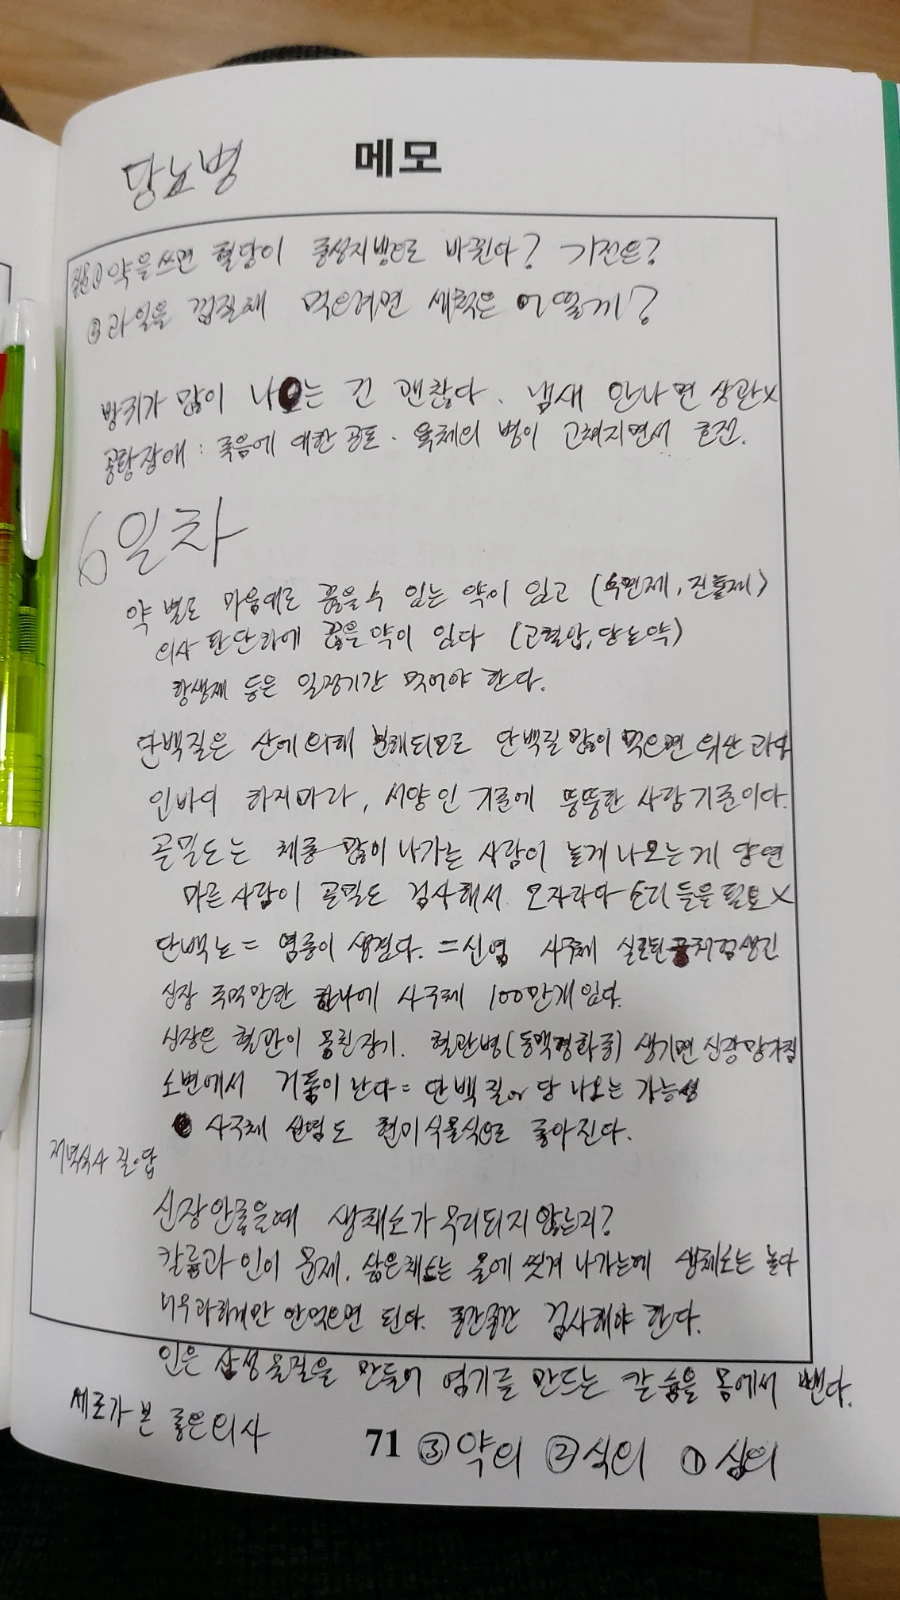 당뇨병 메모
질문① 약을 쓰면 혈당이 중성지방으로 바뀐다? 기전은?
② 과일을 껍질채 먹으려면 세척은 어떻게?
방귀가 많이 나오는 건 괜찮다. 냄새 안나면 상관X
공황장애 : 죽음에 대한 공포. 육체의 병이 고쳐지면서 호전.
6일차
약 별로 마음대로 끊을수 있는 약이 있고 (수면제, 진통제)
의사 판단하에 끊을 약이 있다 (고혈압, 당뇨약)
항생제 등은 일정기간 먹어야 한다.
단백질은 산에 의해 분해되므로 단백질 많이 먹으면 위산 과다
인바디 하지마라, 서양인 기준에 뚱뚱한 사람기준이다.
골밀도는 체중 많이 나가는 사람이 높게 나오는게 당연
마른 사람이 골밀도 검사해서 모자라다 소리 들을 필요X
단백뇨 = 염증이 생겼다. = 신염 사구체 실로된 생긴
심장 주먹만한 하나에 사구체 100만개 있다.
신장은 혈관이 뭉친장기. 혈관병(동맥경화증) 생기면 신장 망가짐
소변에서 거품이 난다 = 단백질or 당 나오는 가능성
사구체 신염도 현미식물식으로 좋아진다.
저녁식사 질의답
신장 안좋을때 생채소가 무리되지 않는지?
칼륨과 인이 문제. 삶은채소는 물에 씻겨 나가는데 생채소는 높다
너무과하게만 안먹으면 된다. 중간중간 검사해야 한다.
인은 산성물질을 만들어 염기를 만드는 칼슘을 몸에서 뺀다.
세조가 본 좋은의사 71 ③약의 ②식의 ①심의